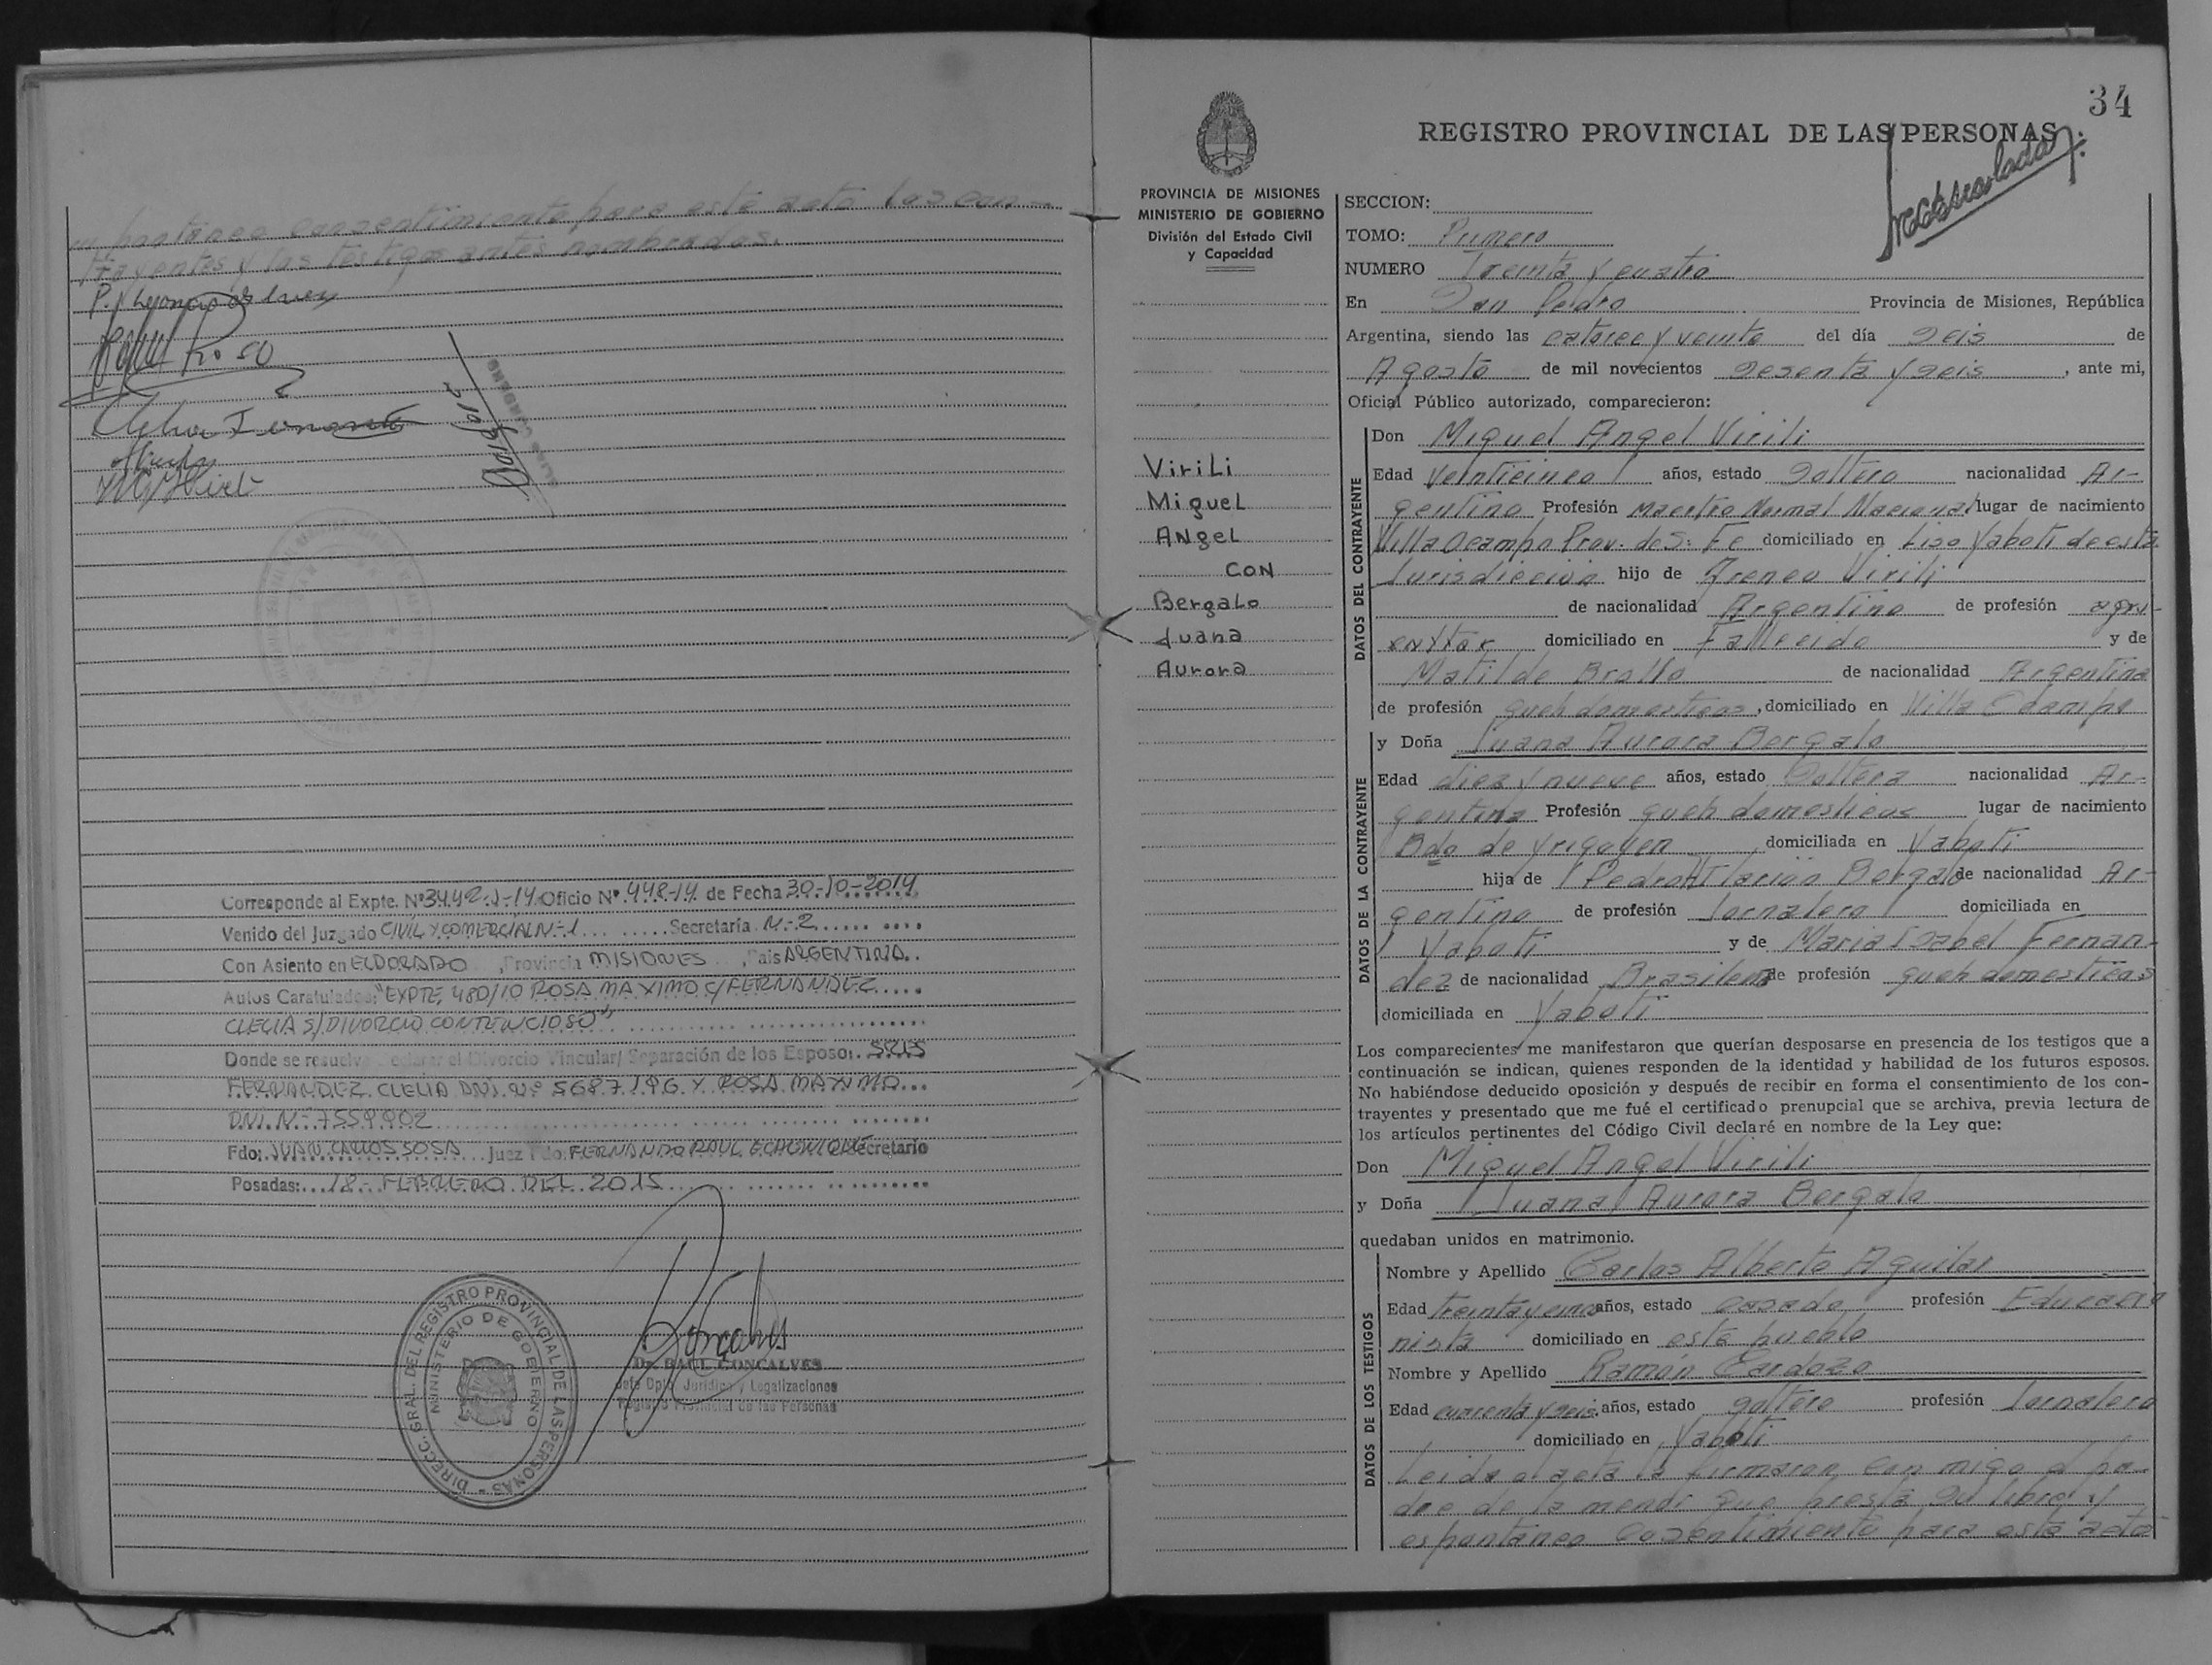 espontáneo consentimiento para este acto los con-
trayentes y los testigos antes nombrados.
Corresponde al Expte. Nº3442-J-14 Oficio Nº 448-14 de Fecha 30-10-2014
Venido del Juzgado CIVIL Y COMERCIAL N-1 Secretaría N-2
Con Asiento en ELDORADO, Provincia MISIONES, Pais ARGENTINA.
Autos Caratulados: "EXPTE, 480/10 ROSA MAXIMO C/FERNANDEZ
CLELIA S/DIVORCIO CONTENCIOSO"
Donde se resuelve Declarar el Divorcio Vincular/ Separación de los Esposos: SRES
FERNANDEZ CLELIA DNI. Nº 5687.196. Y ROSA MAXIMO
D.N.I. N-7559902
Fdo: JUAN CARLOS SOSA Juez Fdo: FERNANDO RAUL ECHONIQUE Secretario
Posadas: 18- FEBRERO DEL 2015
DIRECC. GRAL. DEL REGISTRO PROVINCIAL DE LAS PERSONAS
MINISTERIO DE GOBIERNO
Dr. RAUL GONCALVES
Jefe Dpto. Jurídico y Legalizaciones
Registro Provincial de las Personas
34
REGISTRO PROVINCIAL DE LAS PERSONAS
PROVINCIA DE MISIONES
MINISTERIO DE GOBIERNO
División del Estado Civil
y Capacidad
Virili
Miguel
Angel
CON
Bergalo
Juana
Aurora
SECCION:
TOMO: Primero
NUMERO Treinta y cuatro
En San Pedro Provincia de Misiones, República
Argentina, siendo las catorce y veinte del día seis de
Agosto de mil novecientos sesenta y seis, ante mi,
Oficial Público autorizado, comparecieron:
DATOS DEL CONTRAYENTE
Don Miguel Angel Virili
Edad veinticinco años, estado soltero nacionalidad Ar-
gentino Profesión Maestro Normal Nacional lugar de nacimiento
Villa Ocampo Prov. de S. Fe domiciliado en Liso Yabotí de esta
Jurisdicción hijo de Ireneo Virili
de nacionalidad Argentino de profesión agri-
cultor domiciliado en Fallecido y de
Matilde Brollo de nacionalidad Argentina
de profesión queh domesticos, domiciliado en Villa Ocampo
DATOS DE LA CONTRAYENTE
y Doña Juana Aurora Bergalo
Edad diez y nueve años, estado Soltera nacionalidad Ar-
gentina Profesión queh domesticos lugar de nacimiento
Bdo de Yrigoyen domiciliada en Yaboti
hija de Pedro Hilarión Bergalo de nacionalidad Ar-
gentino de profesión Jornalero domiciliada en
Yaboti y de Maria Isabel Fernan-
dez de nacionalidad Brasilera de profesión queh domesticos
domiciliada en Yaboti
Los comparecientes me manifestaron que querían desposarse en presencia de los testigos que a
continuación se indican, quienes responden de la identidad y habilidad de los futuros esposos.
No habiéndose deducido oposición y después de recibir en forma el consentimiento de los con-
trayentes y presentado que me fué el certificado prenupcial que se archiva, previa lectura de
los artículos pertinentes del Código Civil declaré en nombre de la Ley que:
Don Miguel Angel Virili
y Doña Juana Aurora Bergalo
quedaban unidos en matrimonio.
DATOS DE LOS TESTIGOS
Nombre y Apellido Carlos Alberto Aguilar
Edad treinta y cinco años, estado casado profesión Educacio
nista domiciliado en este pueblo
Nombre y Apellido Ramón Cardozo
Edad cuarenta y seis años, estado soltero profesión Jornalero
domiciliado en Yaboti
Leida el acta la firmaron con migo el pa-
dre de la menor que presta su libre y
espontaneo cosentimiento para este acto